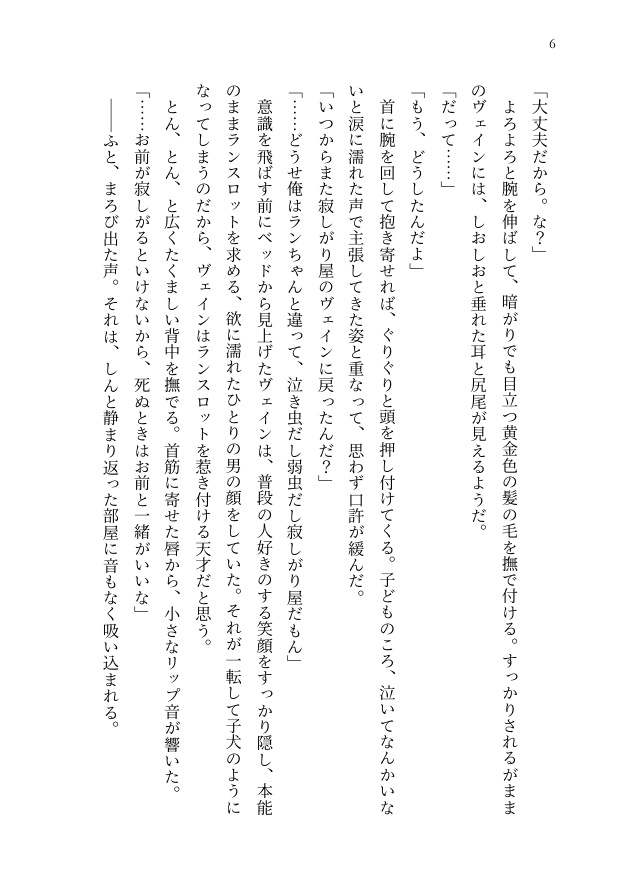 6
「大丈夫だから。な？」
　よろよろと腕を伸ばして、暗がりでも目立つ黄金色の髪の毛を撫で付ける。すっかりされるがまま
のヴェインには、しおしおと垂れた耳と尻尾が見えるようだ。
「だって……」
「もう、どうしたんだよ」
　首に腕を回して抱き寄せれば、ぐりぐりと頭を押し付けてくる。子どものころ、泣いてなんかいな
いと涙に濡れた声で主張してきた姿と重なって、思わず口許が緩んだ。
「いつからまた寂しがり屋のヴェインに戻ったんだ？」
「……どうせ俺はランちゃんと違って、泣き虫だし弱虫だし寂しがり屋だもん」
　意識を飛ばす前にベッドから見上げたヴェインは、普段の人好きのする笑顔をすっかり隠し、本能
のままランスロットを求める、欲に濡れたひとりの男の顔をしていた。それが一転して子犬のように
なってしまうのだから、ヴェインはランスロットを惹き付ける天才だと思う。
　とん、とん、と広くたくましい背中を撫でる。首筋に寄せた唇から、小さなリップ音が響いた。
「……お前が寂しがるといけないから、死ぬときはお前と一緒がいいな」
　――ふと、まろび出た声。それは、しんと静まり返った部屋に音もなく吸い込まれる。